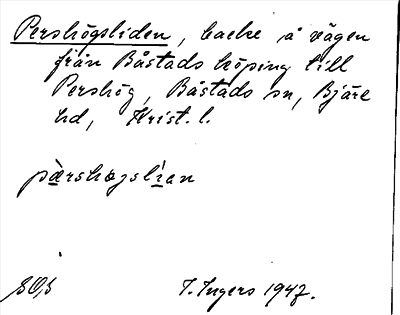 Pershögsliden, backe å vägen
från Båstads köping till
Pershög, Båstads sn, Bjäre
hd, Krist. l.
pærshøgslían
I. Ingers 1947.